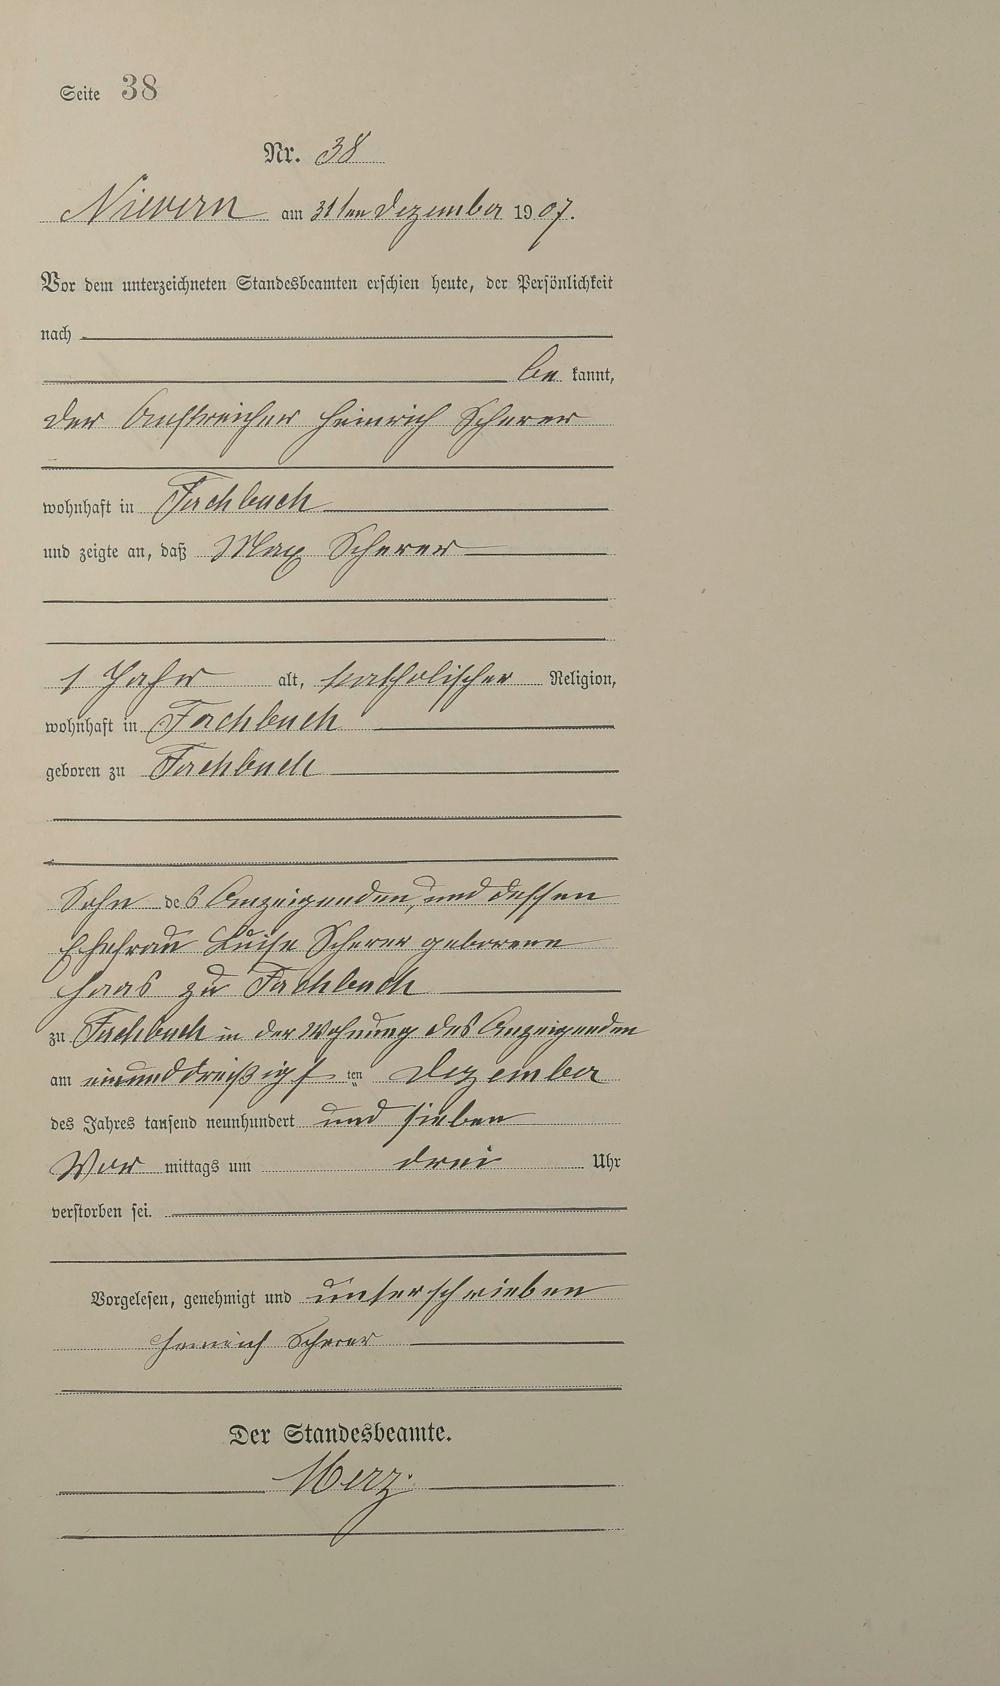 Seite 38
Nr. 38
Nievern am 31ten Dezember 1907.
Vor dem unterzeichneten Standesbeamten erschien heute, der Persönlichkeit
nach
be kannt,
der Anstreicher Heinrich Scherer
wohnhaft in Fachbach
und zeigte an, daß Max Scherer
1 Jahr alt, katholischer Religion,
wohnhaft in Fachbach
geboren zu Fachbach
Sohn des Anzeigenden, und dessen
Ehefrau Luise Scherer geborene
Haas zu Fachbach
zu Fachbach in der Wohnung des Anzeigenden
am einunddreißigsten Dezember
des Jahres tausend neunhundert und sieben
Vor mittags um drei Uhr
verstorben sei.
Vorgelesen, genehmigt und unterschrieben
Heinrich Scherer
Der Standesbeamte.
Merz.